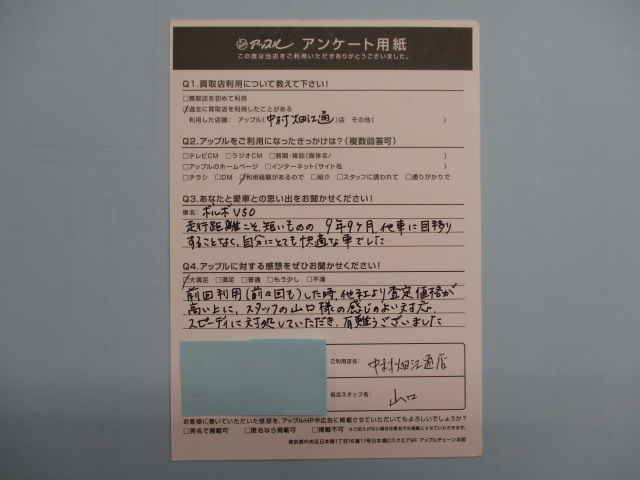 アップル アンケート用紙
この度は当店をご利用いただきありがとうございました。
Q1.買取店利用について教えて下さい!
□買取店を初めて利用
☑過去に買取店を利用したことがある
利用した店舗: アップル(中村畑江通)店 その他( )
Q2.アップルをご利用になったきっかけは?(複数回答可)
□テレビCM □ラジオCM □新聞・雑誌(媒体名/ )
□アップルのホームページ □インターネット(サイト名 )
□チラシ □DM ☑利用経験があるので □紹介 □スタッフに誘われて □通りがかりで
Q3.あなたと愛車との思い出をお聞かせください!
車名: ボルボV50
走行距離こそ、短いものの 9年9ヶ月、他車に目移り
することなく、自分にとても快適な車でした
Q4.アップルに対する感想をぜひお聞かせください!
☑大満足 □満足 □普通 □もう少し □不満
前回利用(前々回も)した時、他社より査定価格が
高い上に、スタッフの山口様の感じのよい対応、
スピーディに対処していただき、有難うございました
ご利用店名: 中村畑江通店
担当スタッフ名: 山口
お客様に書いていただいた感想を、アップルHPや広告に掲載させていただいてもよろしいでしょうか?
□実名で掲載可 □匿名なら掲載可 □掲載不可 ※ご記入がない場合は匿名での掲載とさせていただきます。
東京都中央区日本橋1丁目16番11号日本橋Dスクエア9F アップルチェーン本部